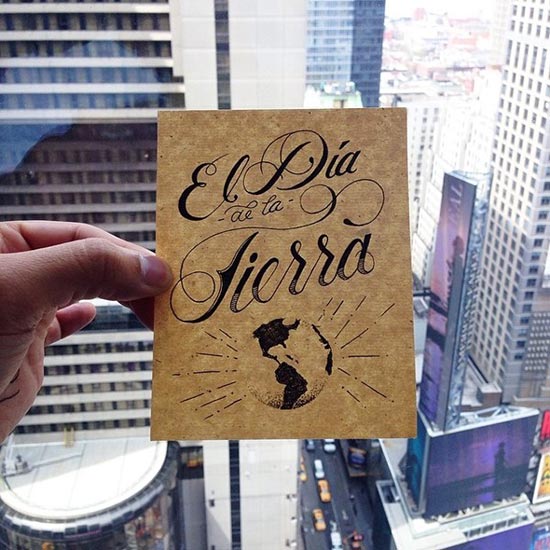 El Día
de la
Tierra